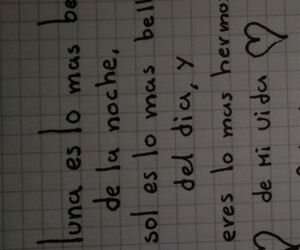 luna es lo mas be
de la noche,
sol es lo mas bell
del dia, y
eres lo mas hermo
de mi vida